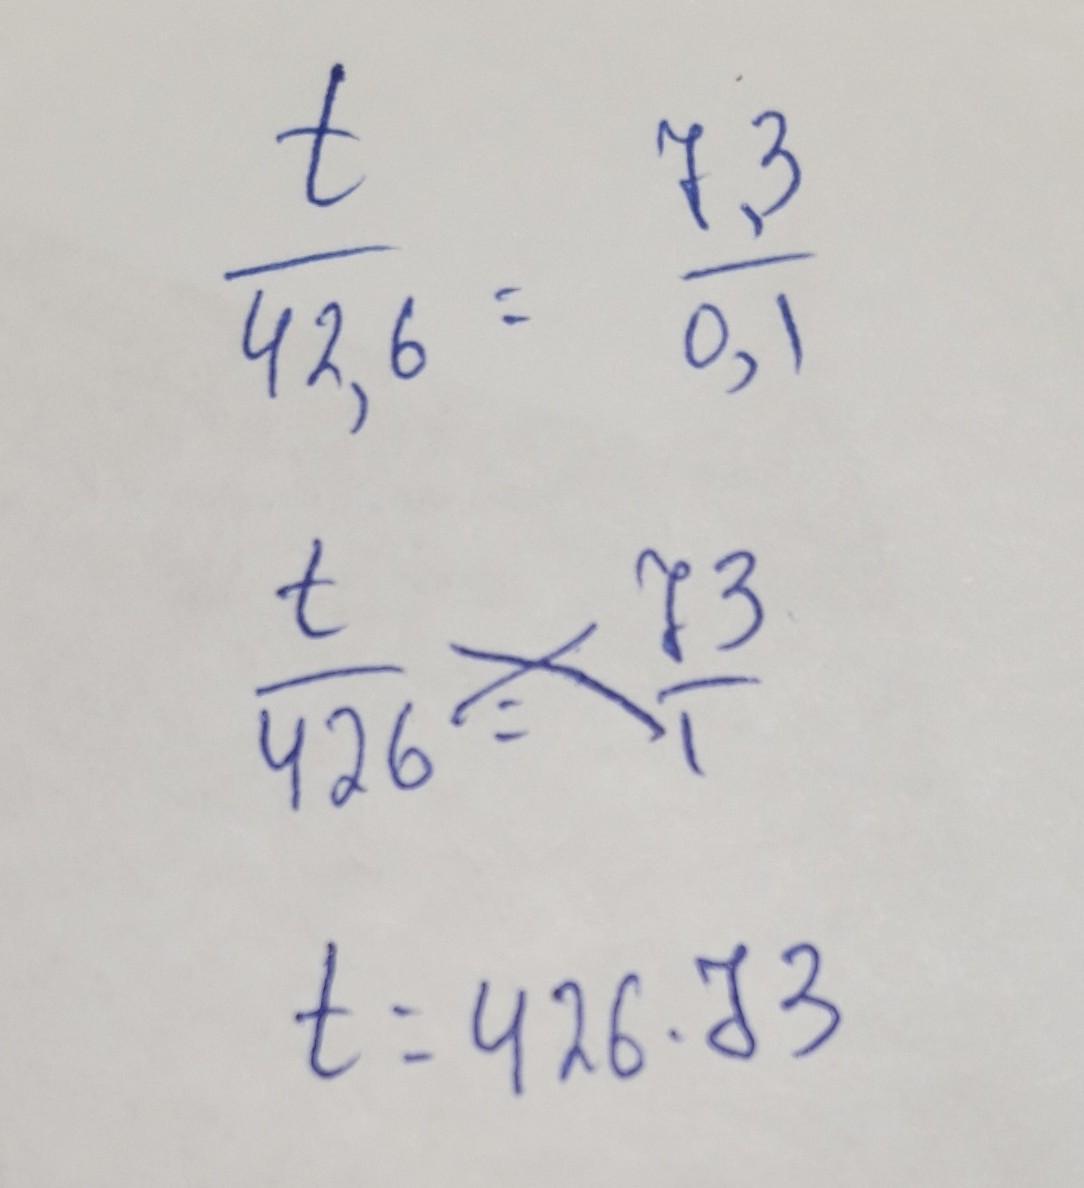 t/42,6 = 7,3/0,1
t/426 = 73/1
t = 426 · 73